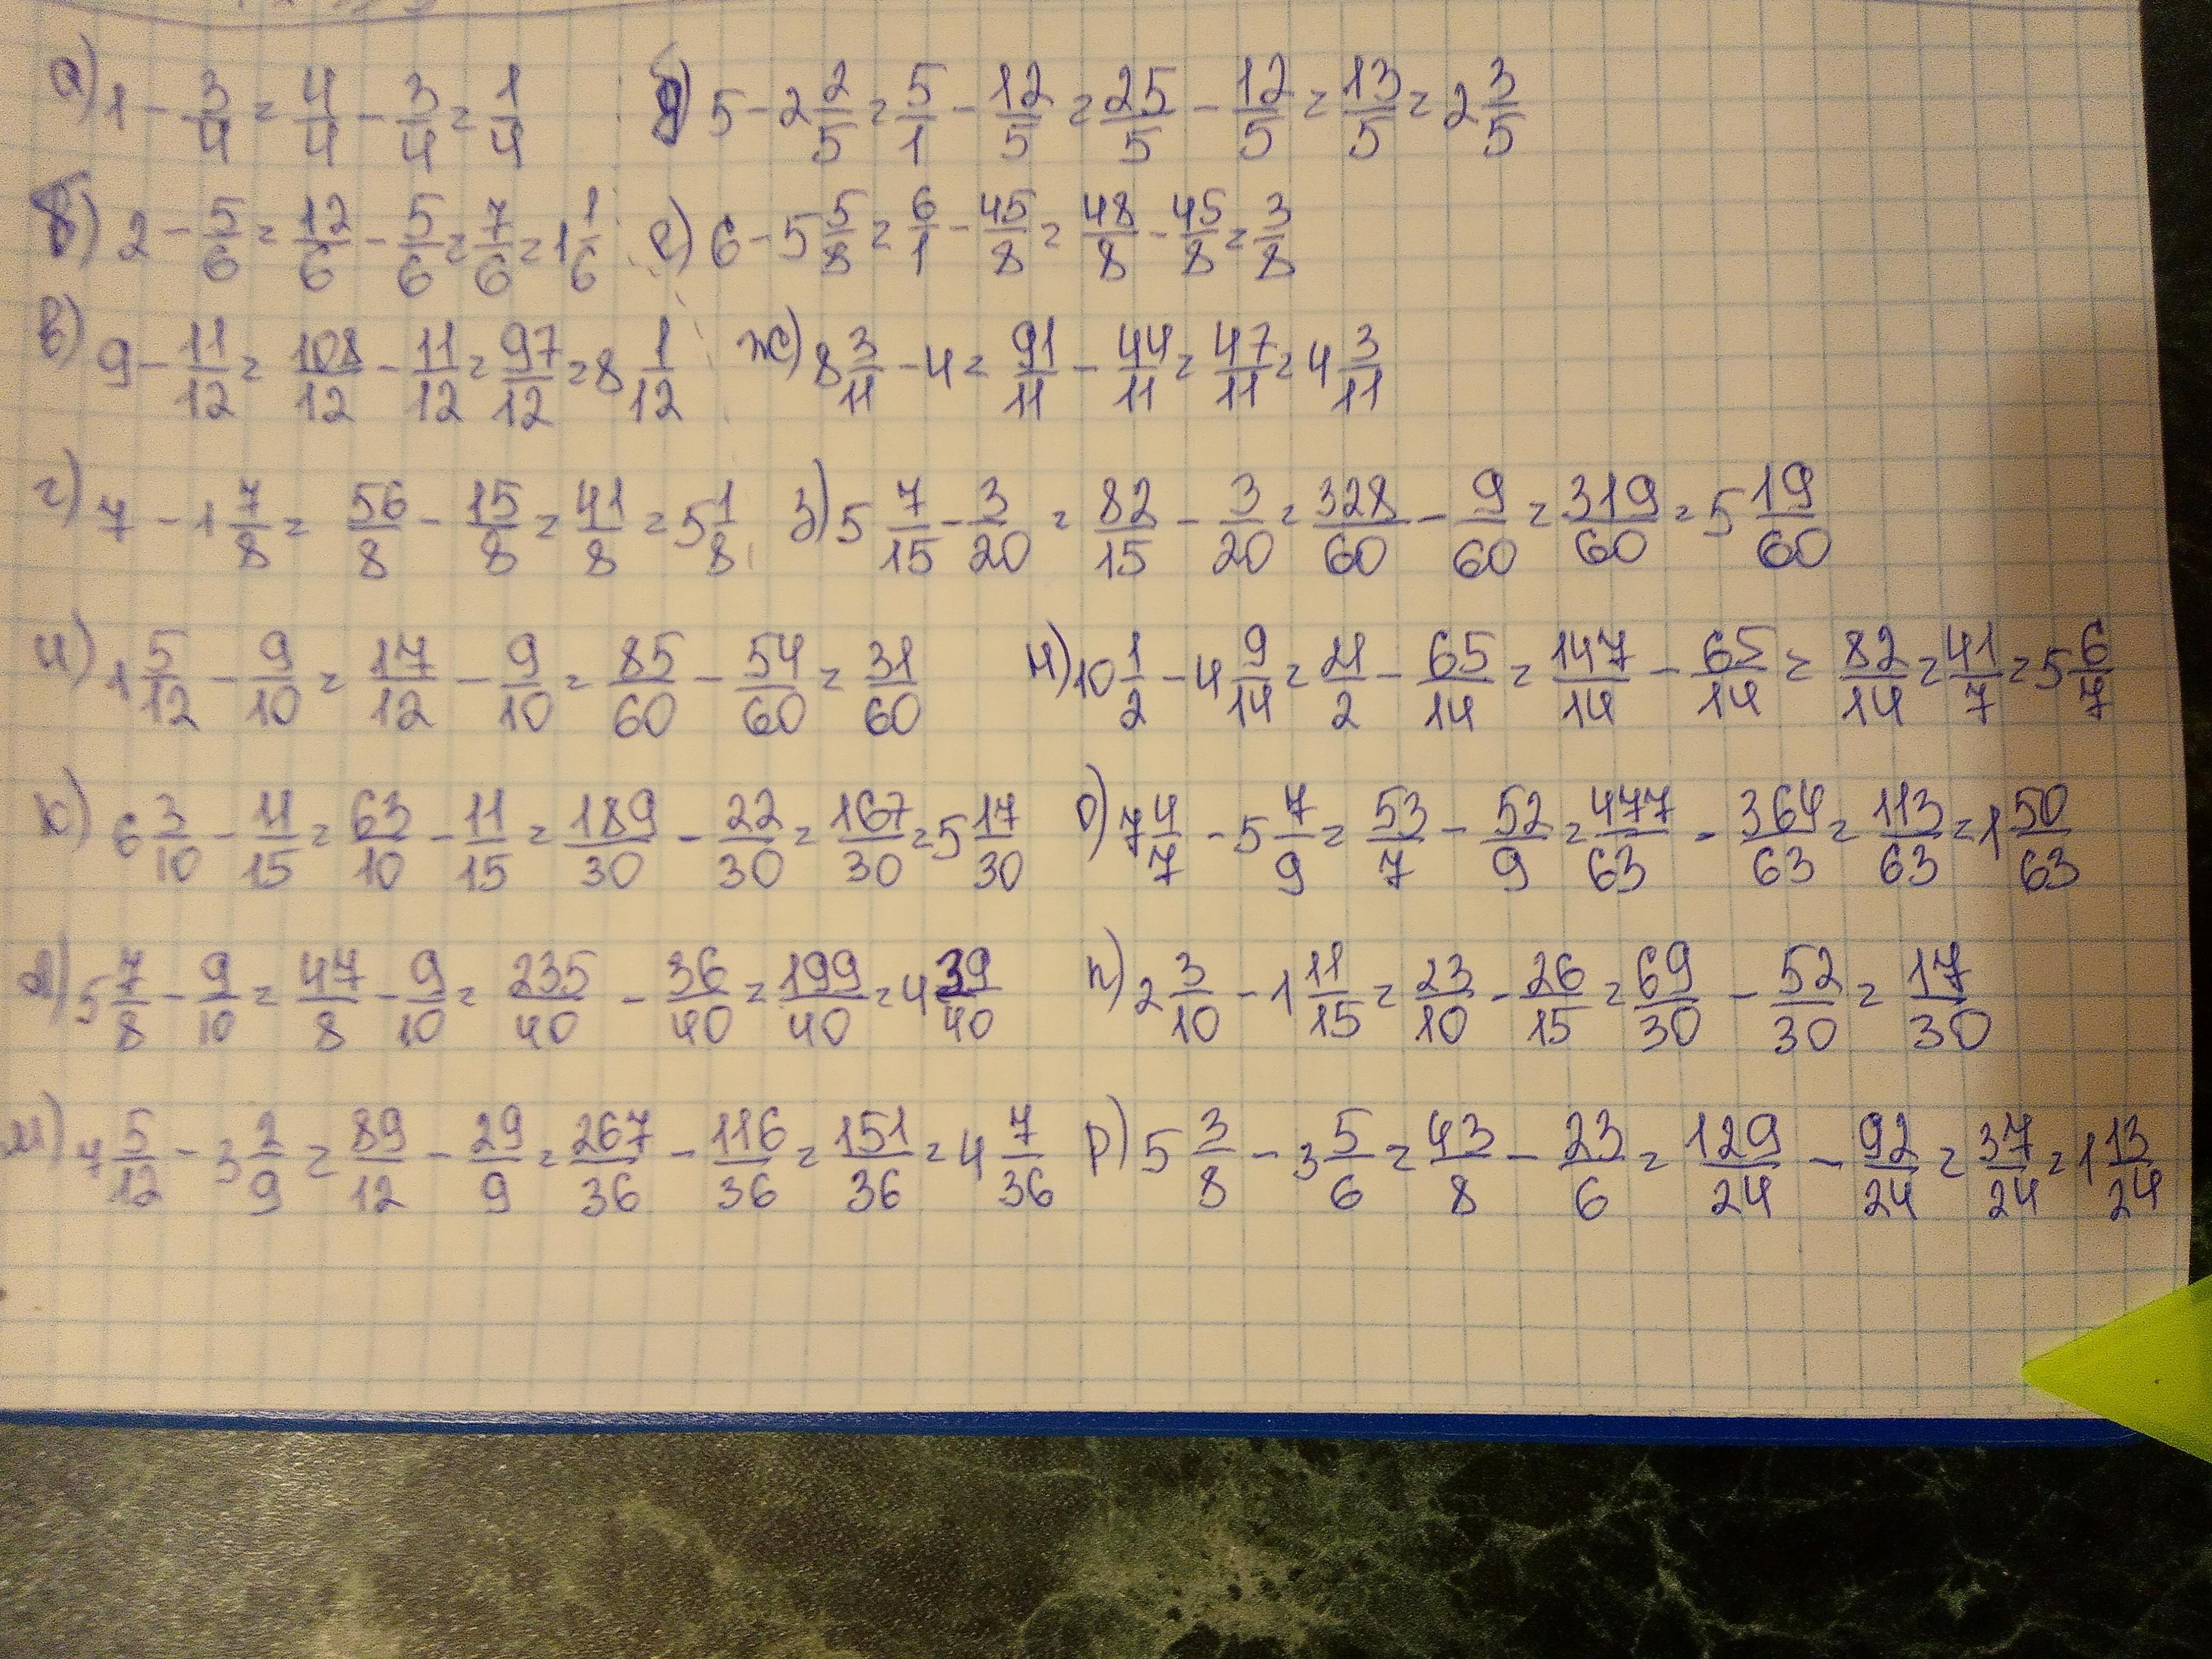 а) 1 - 3/4 = 4/4 - 3/4 = 1/4 д) 5 - 2 2/5 = 5/1 - 12/5 = 25/5 - 12/5 = 13/5 = 2 3/5
б) 2 - 5/6 = 12/6 - 5/6 = 7/6 = 1 1/6 е) 6 - 5 5/8 = 6/1 - 45/8 = 48/8 - 45/8 = 3/8
в) 9 - 11/12 = 108/12 - 11/12 = 97/12 = 8 1/12 ж) 8 3/11 - 4 = 91/11 - 44/11 = 47/11 = 4 3/11
г) 7 - 1 7/8 = 56/8 - 15/8 = 41/8 = 5 1/8 з) 5 7/15 - 3/20 = 82/15 - 3/20 = 328/60 - 9/60 = 319/60 = 5 19/60
и) 1 5/12 - 9/10 = 17/12 - 9/10 = 85/60 - 54/60 = 31/60 н) 10 1/2 - 4 9/14 = 21/2 - 65/14 = 147/14 - 65/14 = 82/14 = 41/7 = 5 6/7
к) 6 3/10 - 11/15 = 63/10 - 11/15 = 189/30 - 22/30 = 167/30 = 5 17/30 о) 7 4/7 - 5 7/9 = 53/7 - 52/9 = 477/63 - 364/63 = 113/63 = 1 50/63
л) 5 7/8 - 9/10 = 47/8 - 9/10 = 235/40 - 36/40 = 199/40 = 4 39/40 п) 2 3/10 - 1 11/15 = 23/10 - 26/15 = 69/30 - 52/30 = 17/30
м) 7 5/12 - 3 2/9 = 89/12 - 29/9 = 267/36 - 116/36 = 151/36 = 4 7/36 р) 5 3/8 - 3 5/6 = 43/8 - 23/6 = 129/24 - 92/24 = 37/24 = 1 13/24